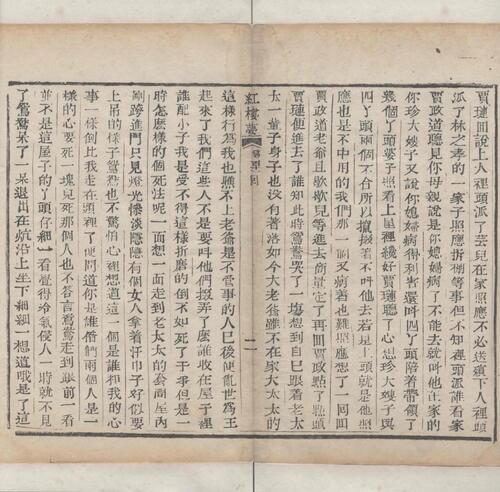 賈璉回說上人裡頭派了芸兒在家照應不必送殯下人裡頭
派了林之孝的一家子照應拆棚等事但不知裡頭派誰看家
賈政道聽見你母親說是你媳婦病了不能去就叫他在家的
你珍大嫂子又說你媳婦病得利害還叫四丫頭陪着帶領了
幾個丫頭婆子照看上屋裡纔好賈璉聽了心想珍大嫂子與
四丫頭兩個不合所以攛掇着不叫他去若是上頭就是他照
應也是不中用的我們那一個又病着也難照應想了一回回
賈政道老爺且歇歇兒等進去商量定了再回賈政點了點頭
賈璉便進去了誰知此時鴛鴦哭了一塲想到自己跟着老太
太一輩子身子也沒有着落如今大老爺雖不在家大太太的
紅樓夢
十一
這樣行為我也瞧不上老爺是不管事的人已後便亂世為王
起來了我們這些人不是要叫他們掇弄了麽誰收在屋子裡
誰配小子我是受不得這樣折磨的倒不如死了干凈但是一
時怎麽樣的個死法呢一面想一面走到老太太的套間屋內
剛跨進門只見燈光慘淡隱隱有個女人拿着汗巾子好似要
上吊的樣子鴛鴦也不驚怕心裡想道這一個是誰和我的心
事一樣倒比我走在頭裡了便問道你是誰偺們兩個人是一
樣的心要死一塊兒死那個人也不答言鴛鴦走到跟前一看
並不是這屋子的丫頭仔細一看覺得冷氣侵人一時就不見
了鴛鴦呆了一呆退出在炕沿上坐下細細一想道哦是了這